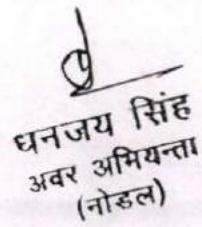 धनजय सिंह
अवर अभियन्ता
(नोडल)